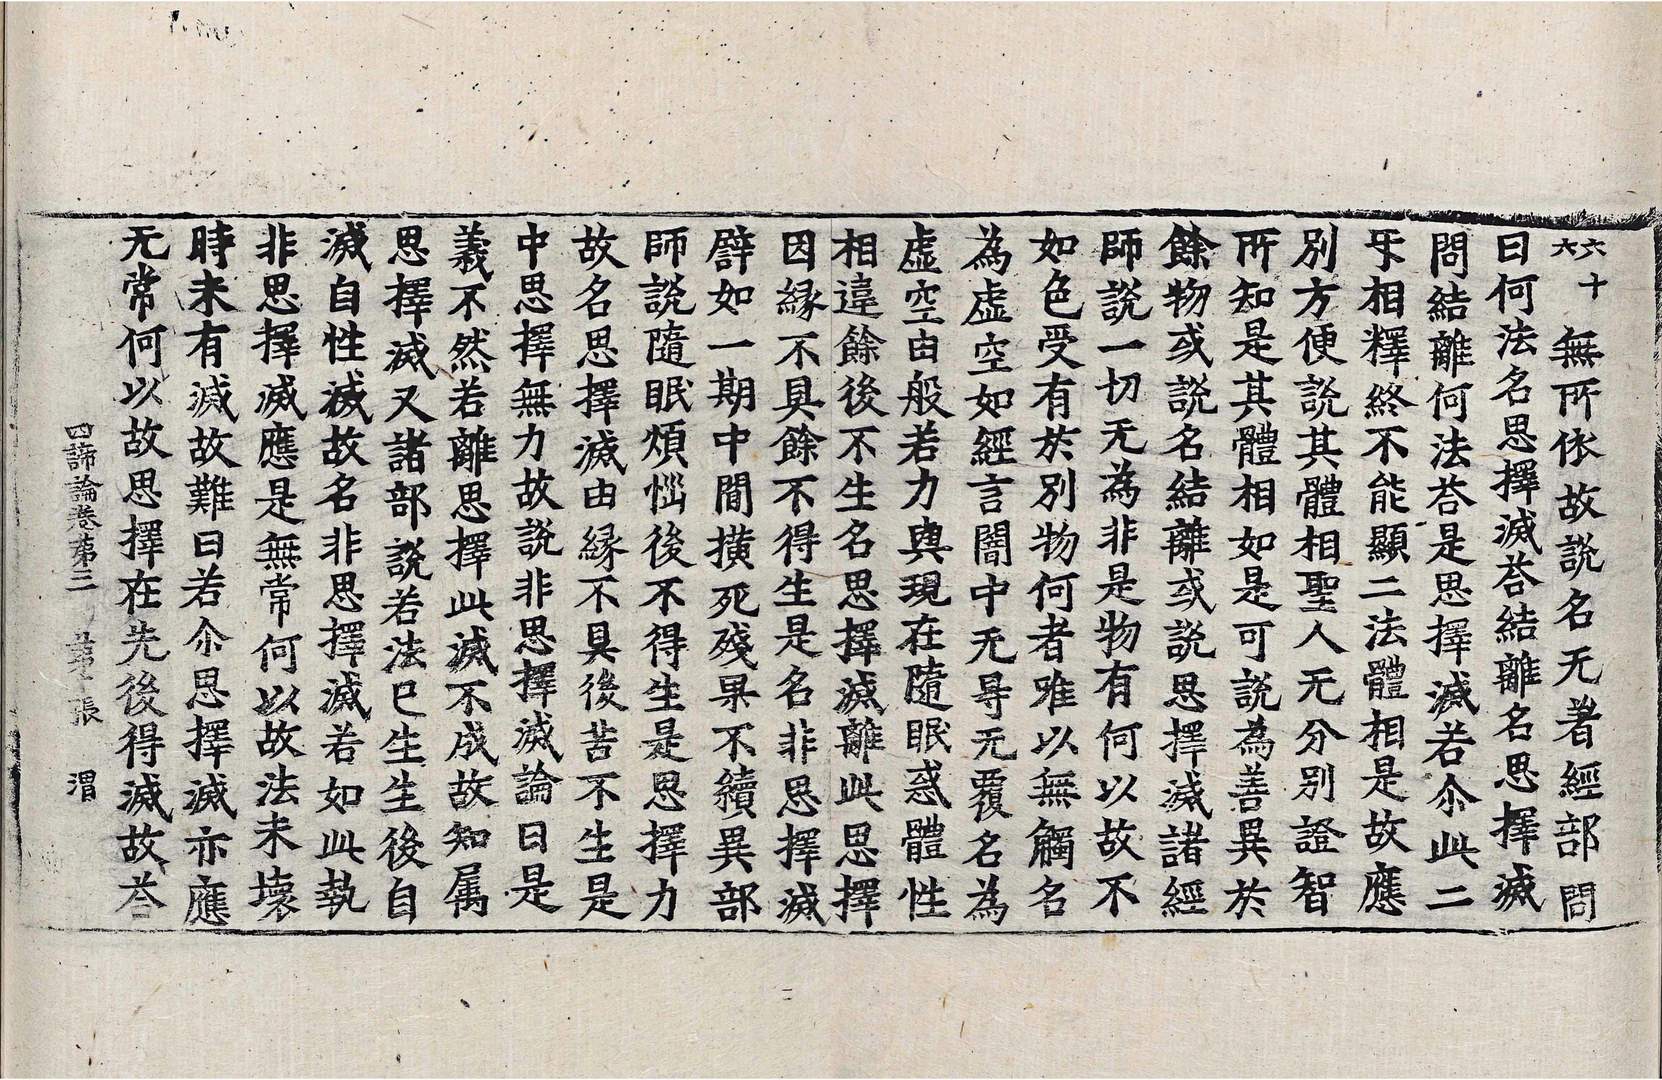 六十六 無所依故說名无著經部 問
曰何法名思擇滅荅結離名思擇滅
問結離何法荅是思擇滅若尒此二
㸦相釋終不能顯二法體相是故應
別方便說其體相聖人无分別證智
所知是其體相如是可說為善異於
餘物或說名結離或說思擇滅諸經
師說一切无為非是物有何以故不
如色受有於別物何者唯以無觸名
為虛空如經言闇中无㝵无覆名為
虛空由般若力與現在隨眠惑體性
相違餘後不生名思擇滅離此思擇
因緣不具餘不得生是名非思擇滅
譬如一期中間撗死殘果不續異部
師說隨眠煩惱後不得生是思擇力
故名思擇滅由緣不具後苦不生是
中思擇無力故說非思擇滅論曰是
義不然若離思擇此滅不成故知属
思擇滅又諸部說若法已生生後自
滅自性滅故名非思擇滅若如此執
非思擇滅應是無常何以故法未壞
時未有滅故難曰若尒思擇滅亦應
无常何以故思擇在先後得滅故荅
四諦論卷第三 第 張 渭